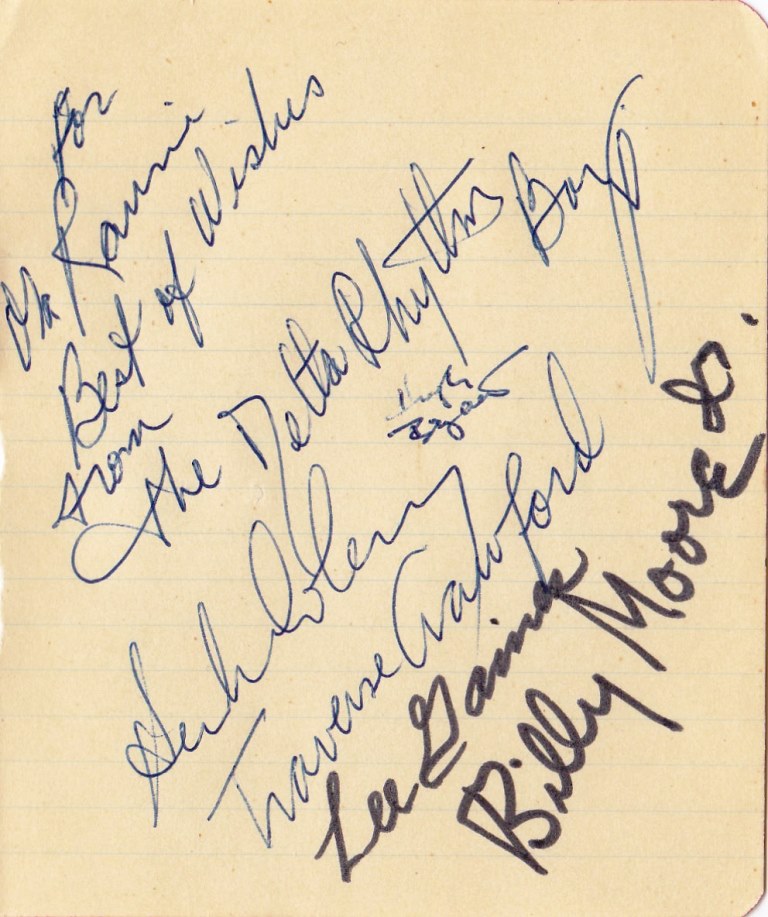 For
Rauni
Best of Wishes
from
the Delta Rhythm Boys
Hugh Bryant
Traverse Crawford
Lee Gaines
Billy Moore Jr.